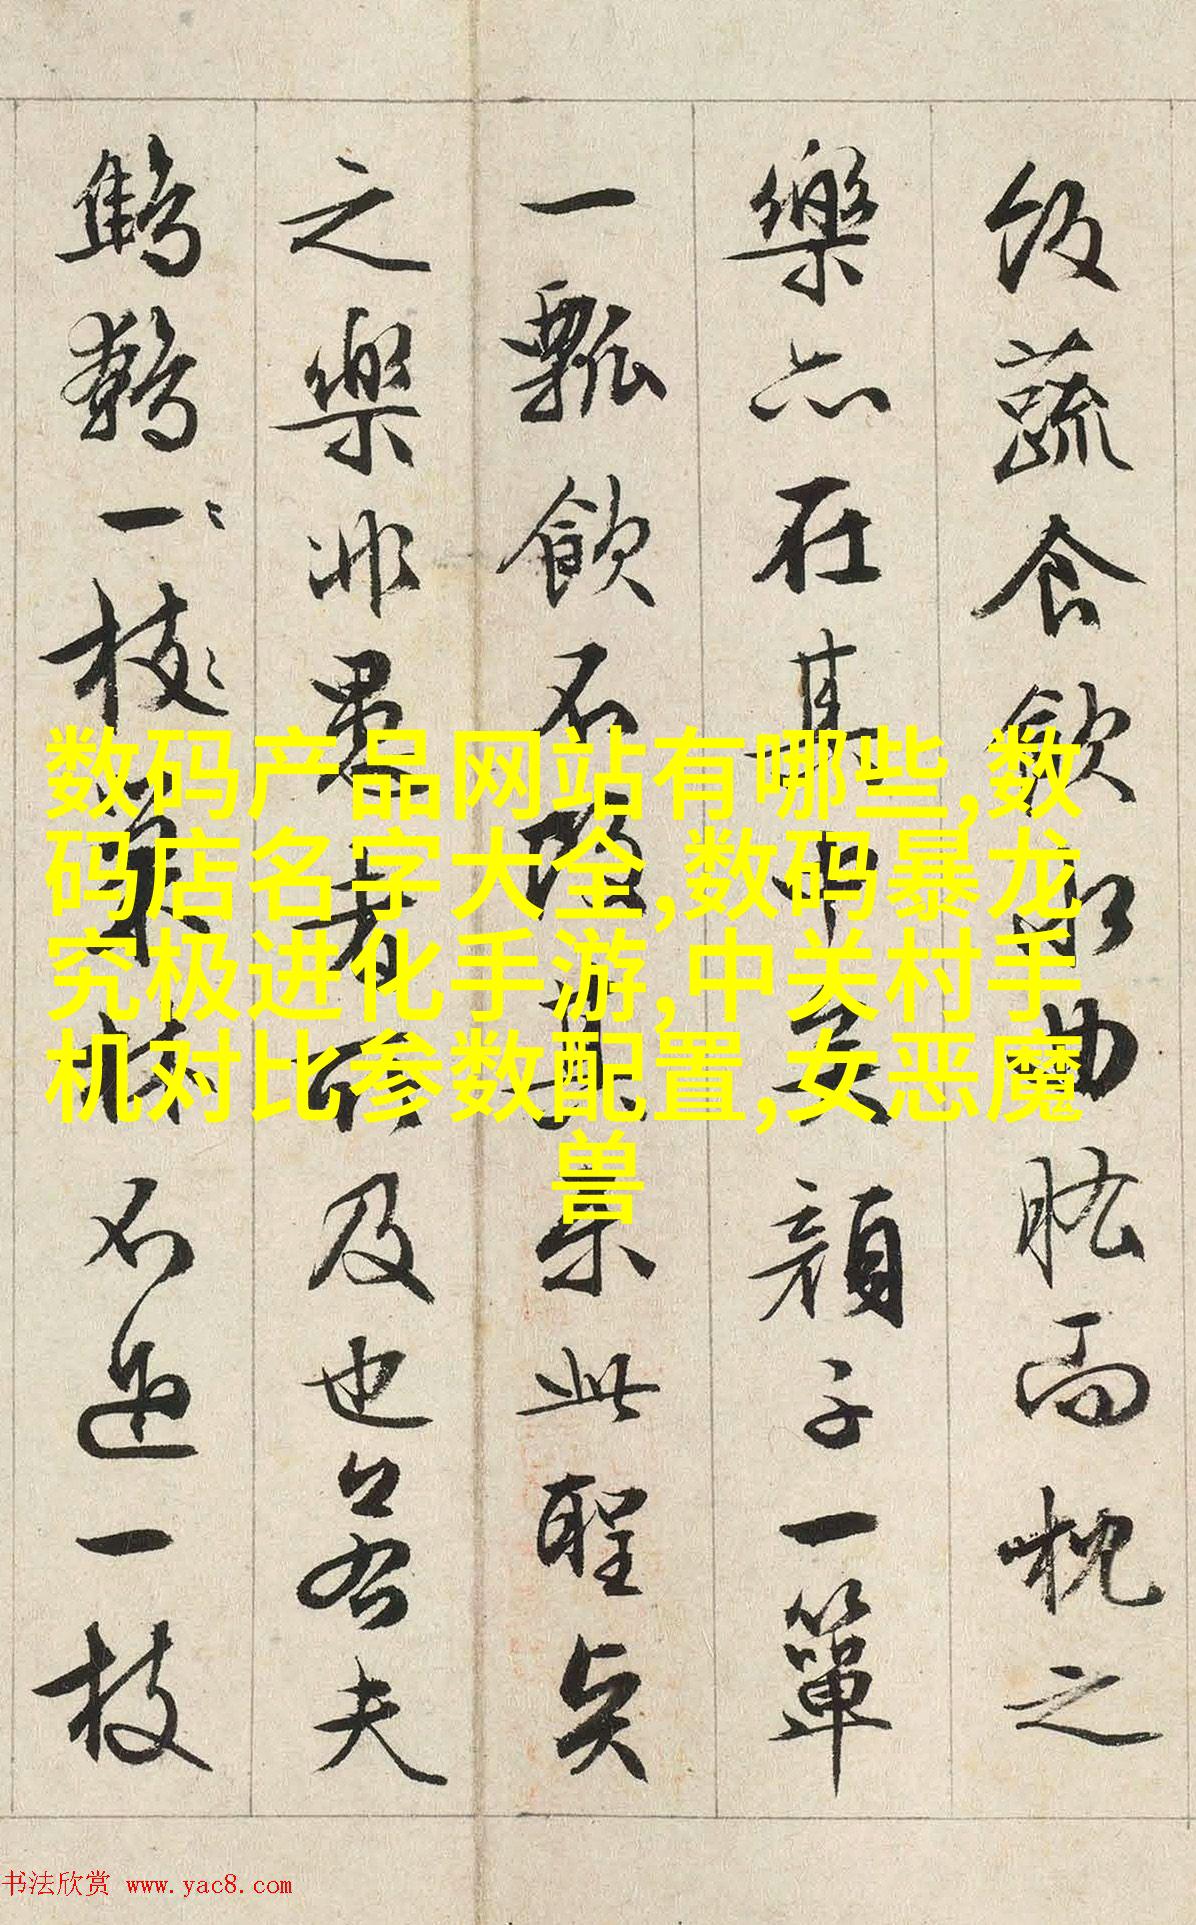 飯蔬食飲水曲肱而枕之
樂亦在其中矣顏子一簞
一瓢飲不改其樂此聖賢
之樂非愚者所及也若夫
鷦鷯一枝巢林不過一枝
数码产品网站有哪些,数
码店名字大全,数码暴龙
究极进化手游,中关村手
机对比参数配置,女恶魔
兽
书法欣赏 www.yac8.com